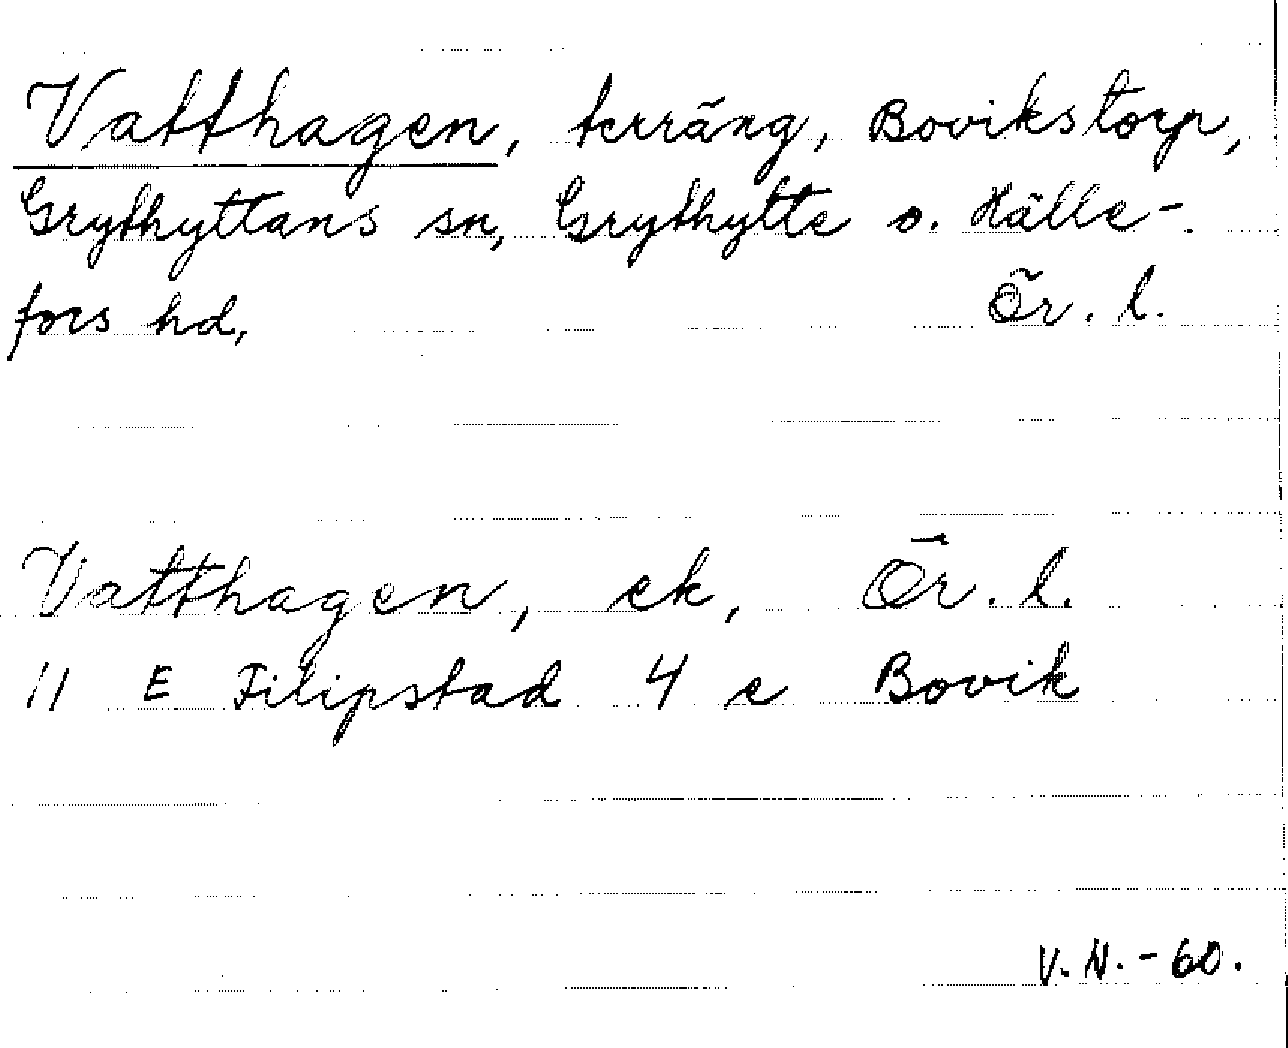 Vatthagen, terräng, Bovikstorp,
Grythyttans sn, Grythytte o. Hälle-
fors hd, Ör. l.
Vatthagen, ek, Ör. l.
11 E Filipstad 4 e Bovik
V. N. - 60.